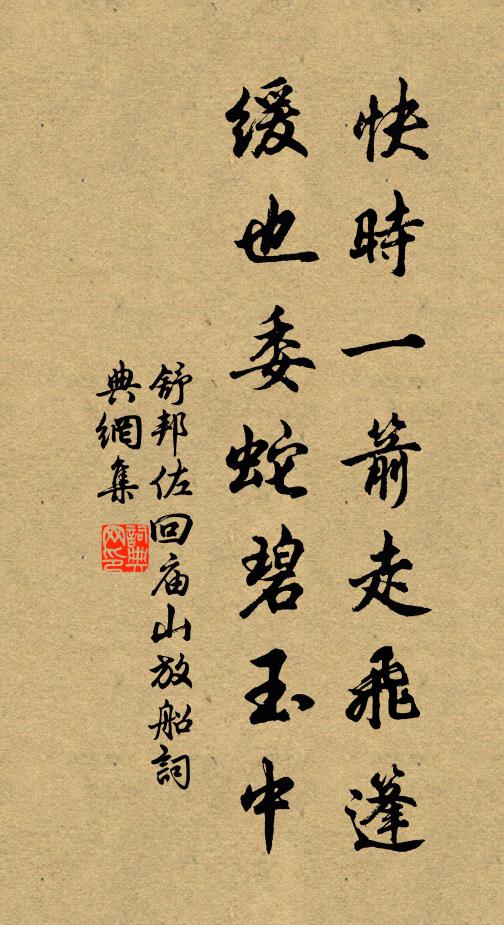 快時一箭走飛蓬
緩也委蛇碧玉中
舒邦佐回庙山放船詞
典網集
詞典网印